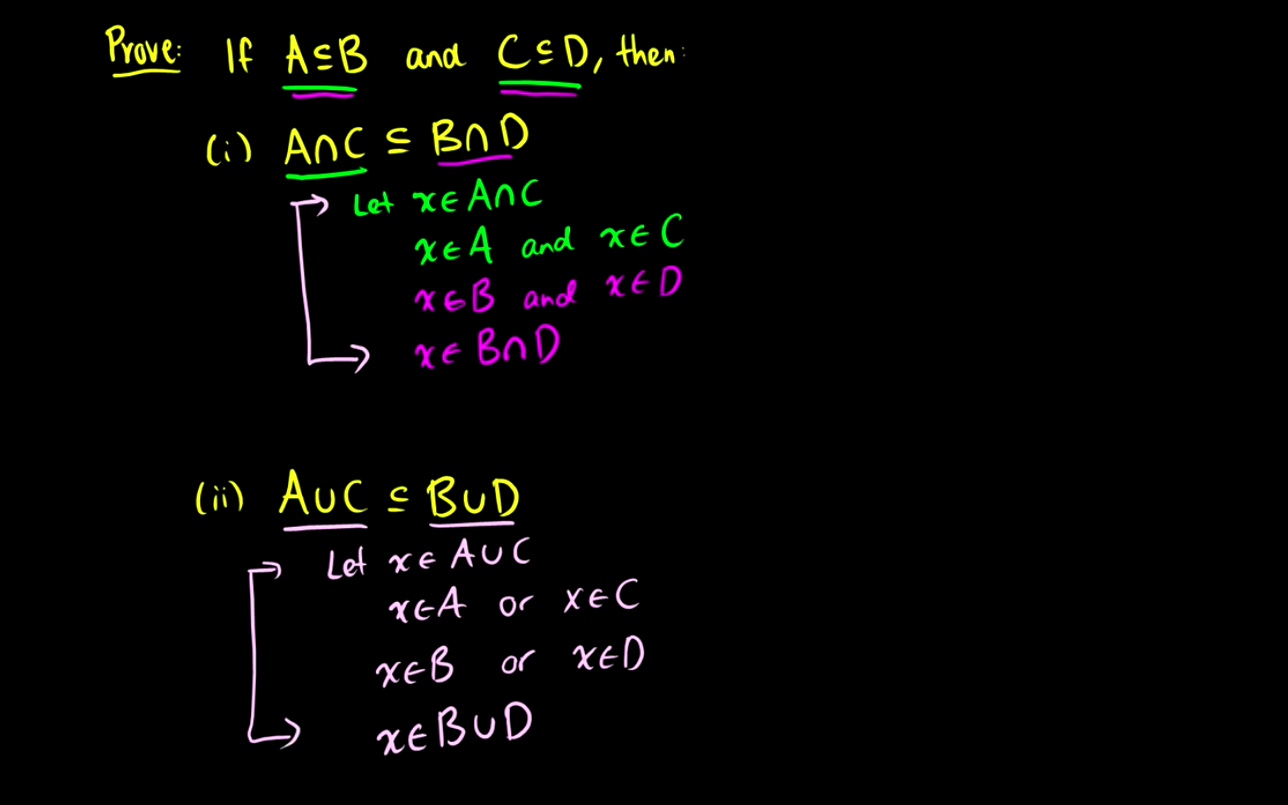 Prove: If A⊆B and C⊆D, then:
(i) A∩C ⊆ B∩D
Let x∈A∩C
x∈A and x∈C
x∈B and x∈D
x∈B∩D
(ii) A∪C ⊆ B∪D
Let x∈A∪C
x∈A or x∈C
x∈B or x∈D
x∈B∪D